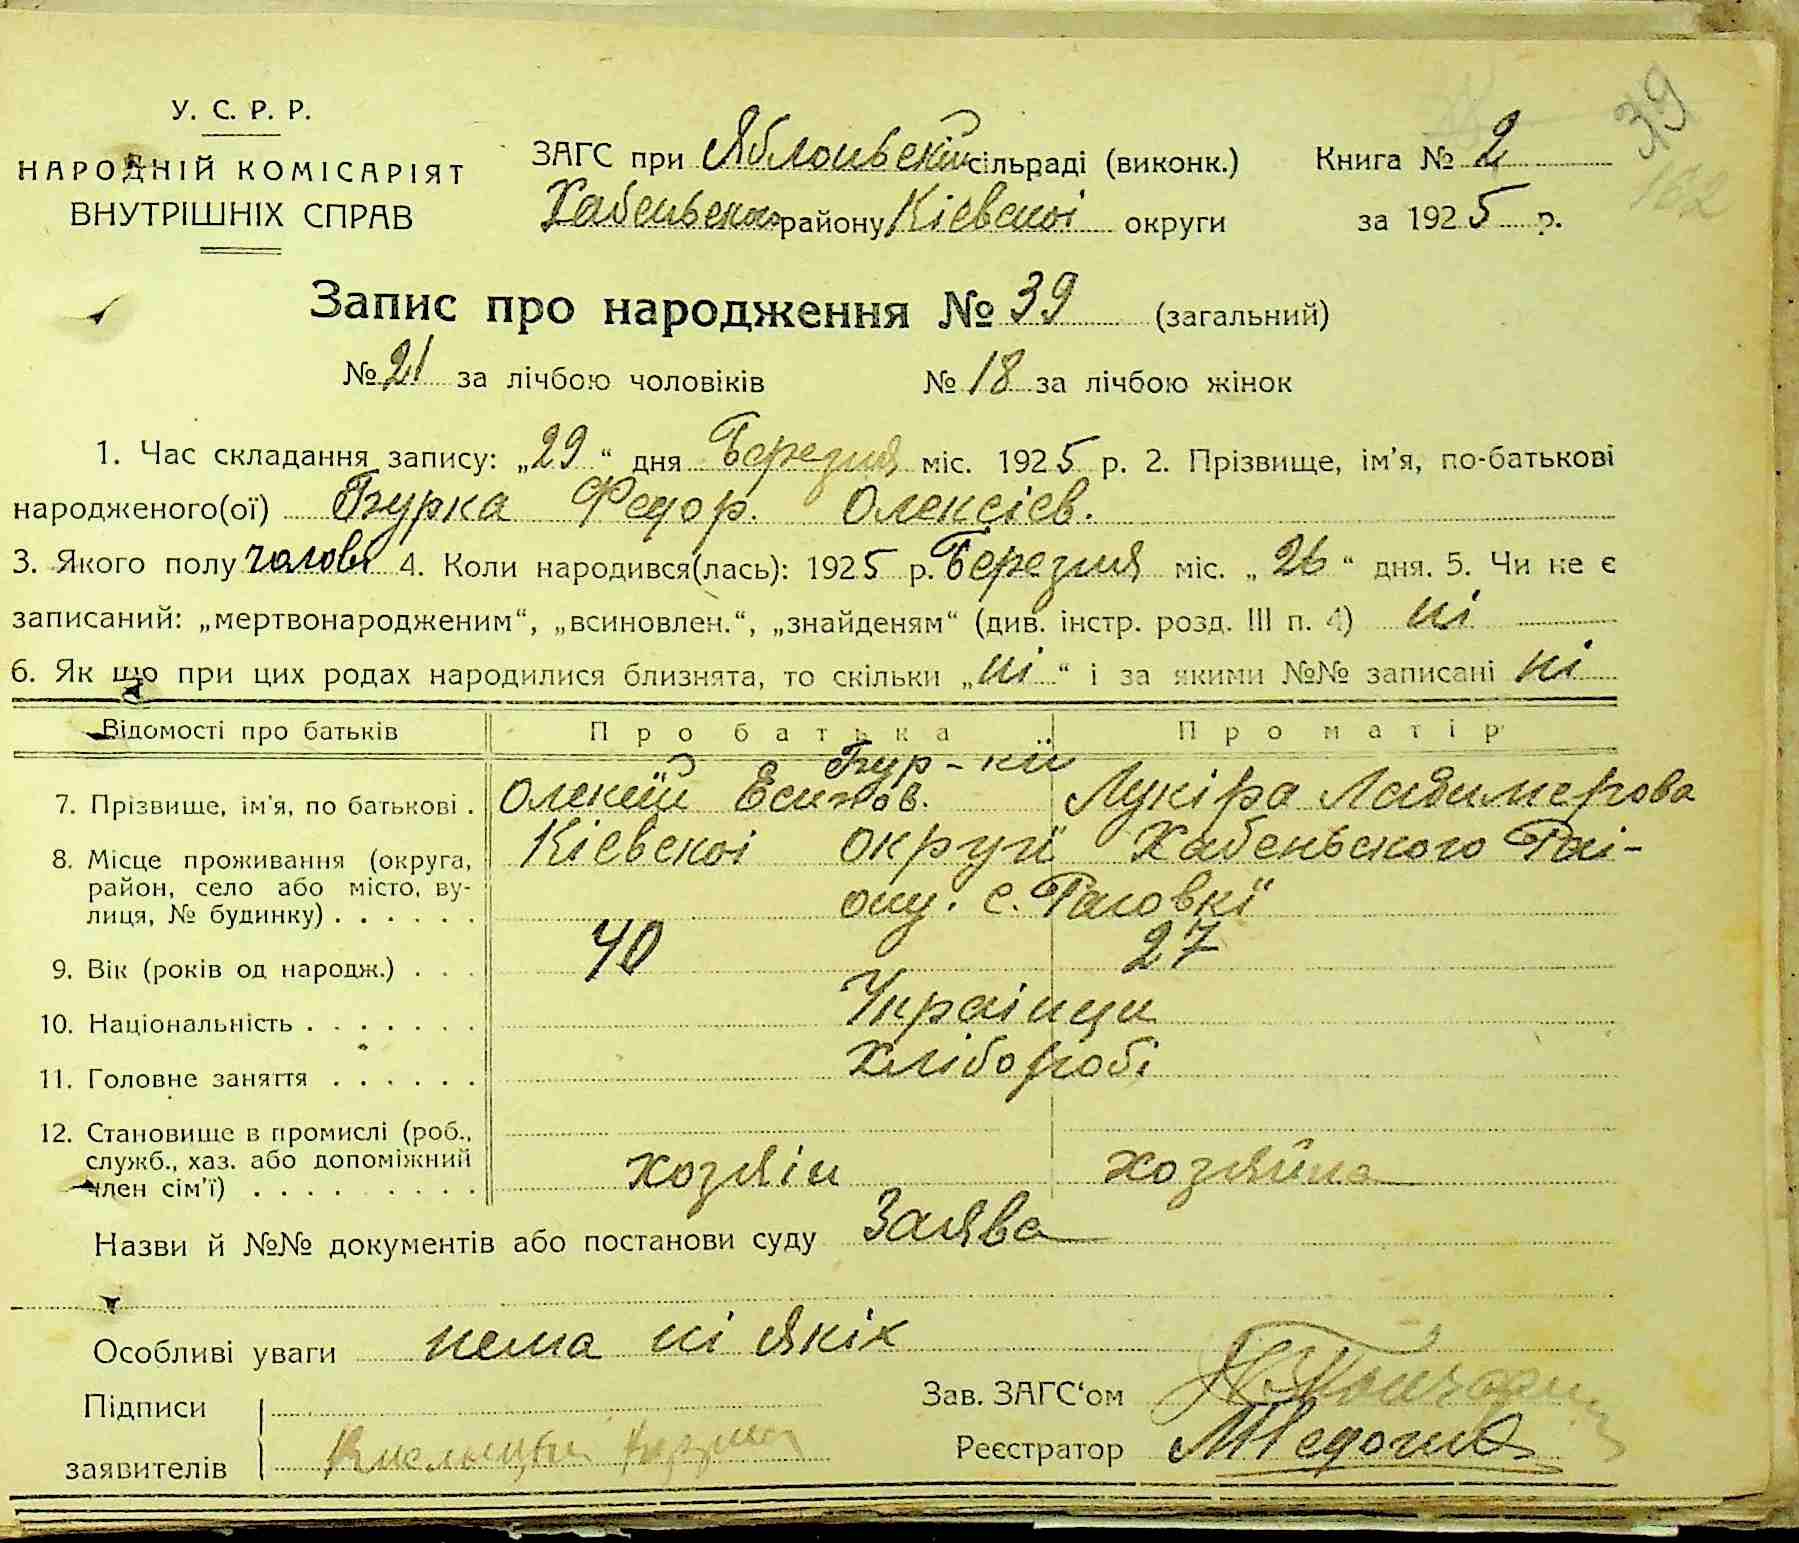 39
162
У. С. Р. Р.
НАРОДНІЙ КОМІСАРІЯТ
ВНУТРІШНІХ СПРАВ
ЗАГС при Яблоньскій сільраді (виконк.) Книга № 2
Хабеньського району Кіевскоі округи за 1925 р.
Запис про народження № 39 (загальний)
№ 21 за лічбою чоловіків № 18 за лічбою жінок
1. Час складання запису: „29“ дня Березня міс. 1925 р. 2. Прізвище, ім’я, по-батькові
народженого(ої) Бурка Федор. Олексієв.
3. Якого полу чолов 4. Коли народився(лась): 1925 р. Березня міс. „26“ дня. 5. Чи не є
записаний: „мертвонародженим“, „всиновлен.“, „знайденям“ (див. інстр. розд. III п. 4) ні
6. Як що при цих родах народилися близнята, то скільки „ні“ і за якими №№ записані ні
Відомості про батьків Про батька Про матір
Бур-кы
7. Прізвище, ім’я, по батькові . Олексій Лукіра Ладимерова
8. Місце проживання (округа, район, село або місто, вулиця, № будинку) . . . . . . Кіевскоі округи Хабеньского Раі-
ону. с. Раговкі
9. Вік (років од народж.) . . . 40 27
10. Національність . . . . . . . Украінци
11. Головне заняття . . . . . . Хлібороби
12. Становище в промислі (роб., служб., хаз. або допоміжний член сім’ї) . . . . . . . . . хозяін хозяйка
Назви й №№ документів або постанови суду Заява
Особливі уваги нема ні якіх
Підписи
заявителів
Зав. ЗАГС‘ом
Реєстратор